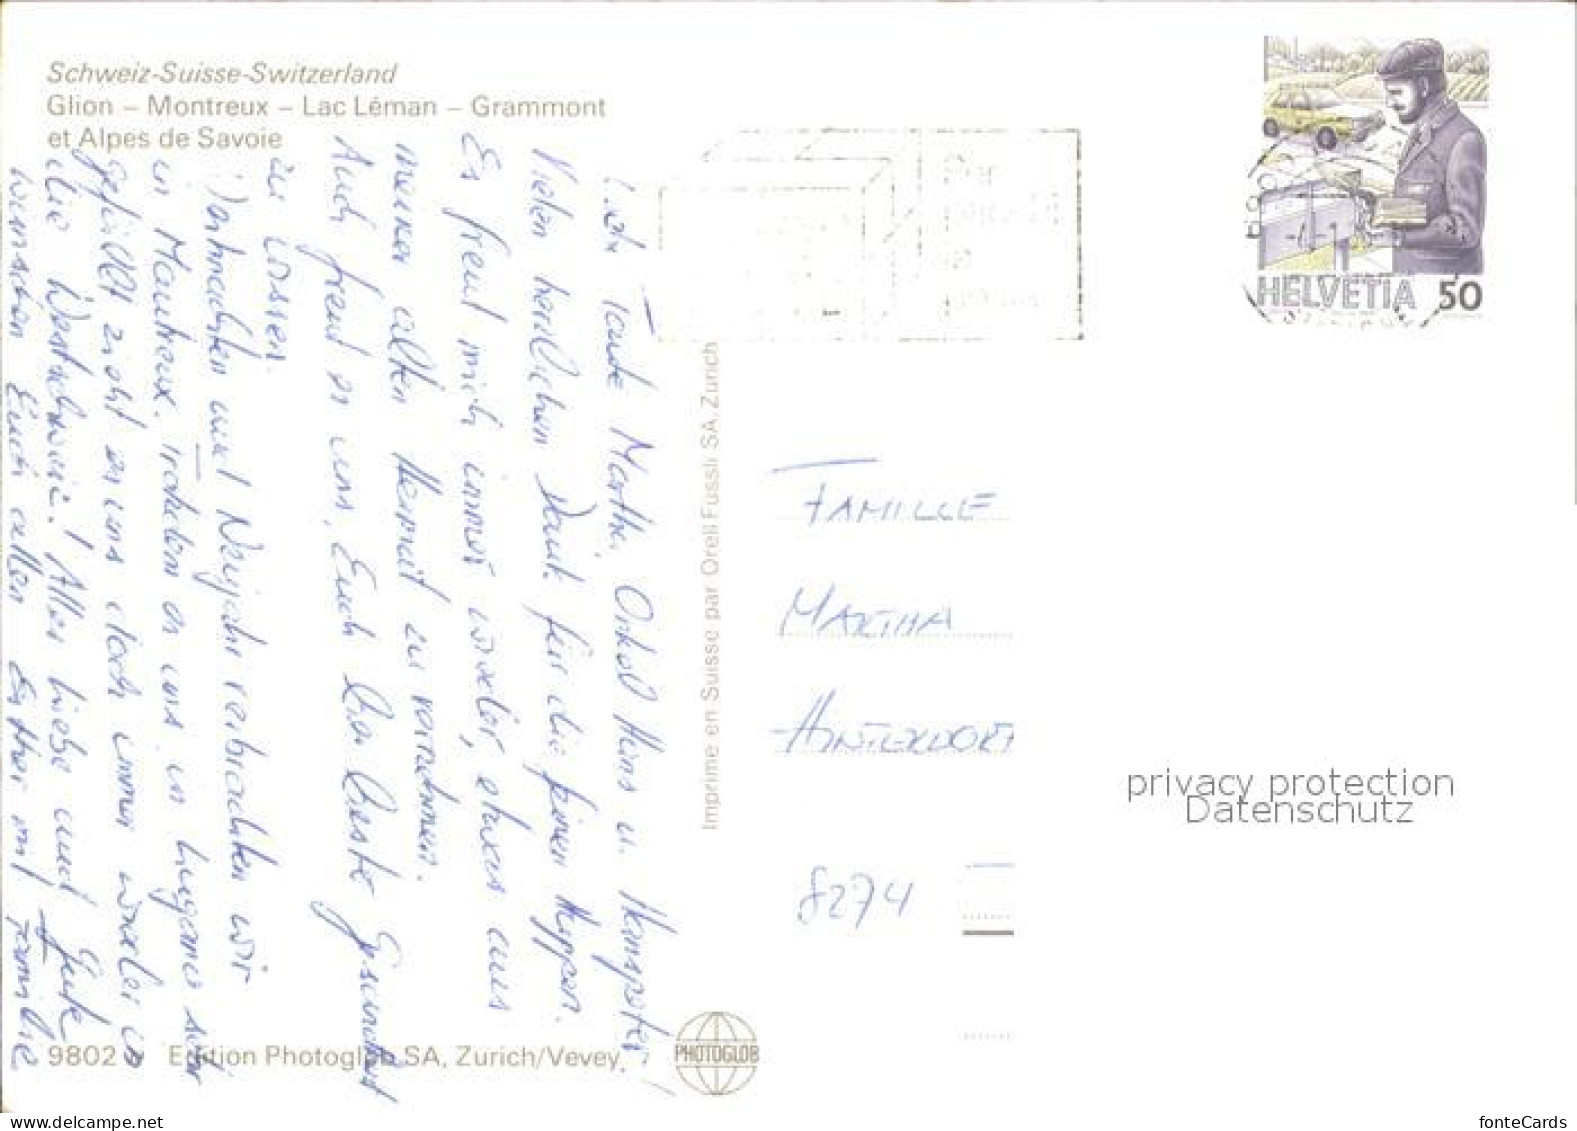 Schweiz-Suisse-Switzerland
Glion – Montreux – Lac Léman – Grammont
et Alpes de Savoie
Liebe Tante Martha, Onkel Hans u. Hanspeter!
Vielen herzlichen Dank für die feinen Hüppen.
Es freut mich immer wieder, etwas aus
meiner alten Heimat zu vernehmen.
Auch freut es uns, Euch bei bester Gesundheit
zu wissen.
Weihnachten und Neujahr verbrachten wir
in Montreux. Trotzdem es uns in Lugano sehr
gefällt zieht es uns doch immer wieder in
die Westschweiz! Alles Liebe und Gute
wünschen Euch allen Esther mit Familie
Imprimé en Suisse par Orell Füssli SA, Zurich
HELVETIA 50
FAMILLE
MARTHA
HINTERDORF
8274
privacy protection
Datenschutz
9802 Edition Photoglob SA, Zurich/Vevey.
PHOTOGLOB
www.delcampe.net
fonteCards